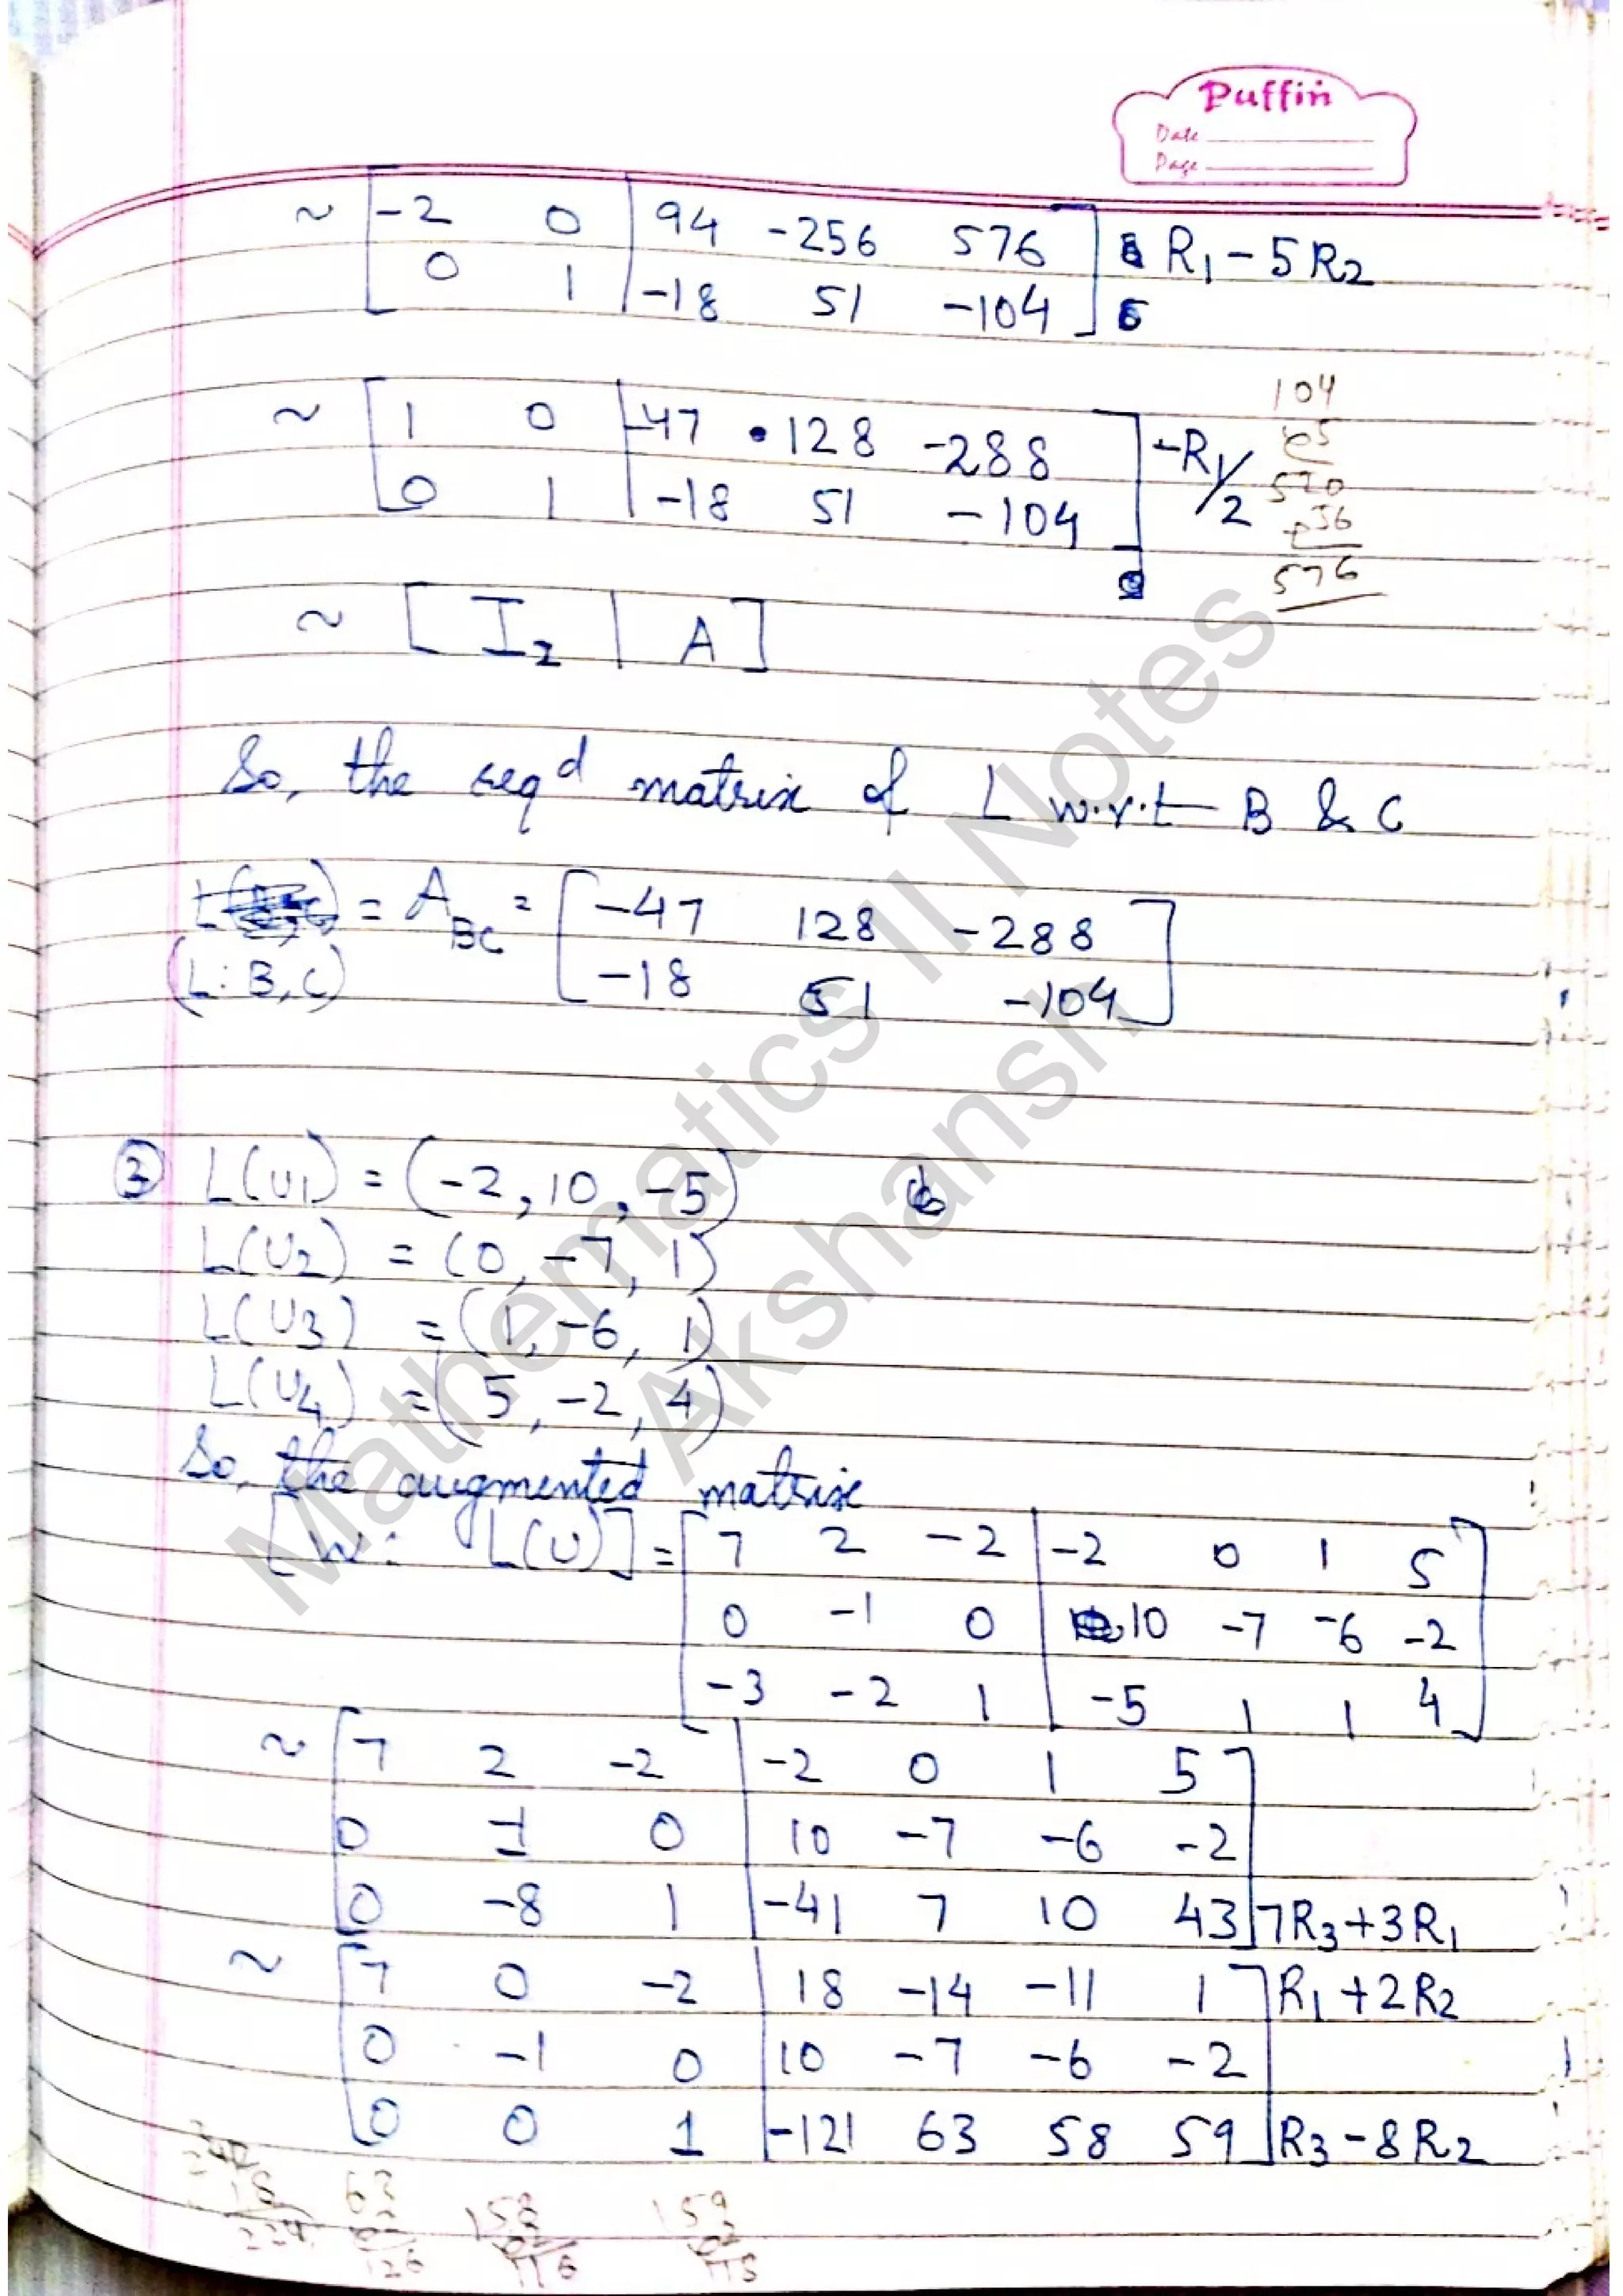 Puffin
Date
Page
~ [ -2 0 | 94 -256 576 ] R1 - 5R2
[ 0 1 | -18 51 -104 ]
~ [ 1 0 | -47 128 -288 ] -R1/2
[ 0 1 | -18 51 -104 ]
104
520
576
~ [ I2 | A ]
So, the reqd matrix of L w.r.t B & C
= ABC = [ -47 128 -288 ]
(L: B, C) [ -18 51 -104 ]
③ L(u1) = (-2, 10, -5)
L(u2) = (0, -7, 1)
L(u3) = (1, -6, 1)
L(u4) = (5, -2, 4)
So, the augmented matrix
[ W: L(U) ] = [ 7 2 -2 | -2 0 1 5 ]
[ 0 -1 0 | 10 -7 -6 -2 ]
[ -3 -2 1 | -5 1 1 4 ]
~ [ 7 2 -2 | -2 0 1 5 ]
[ 0 -1 0 | 10 -7 -6 -2 ]
[ 0 -8 1 | -41 7 10 43 ] 7R3 + 3R1
~ [ 7 0 -2 | 18 -14 -11 1 ] R1 + 2R2
[ 0 -1 0 | 10 -7 -6 -2 ]
[ 0 0 1 | -121 63 58 59 ] R3 - 8R2
63
126
Mathematics II Notes
Akshansh